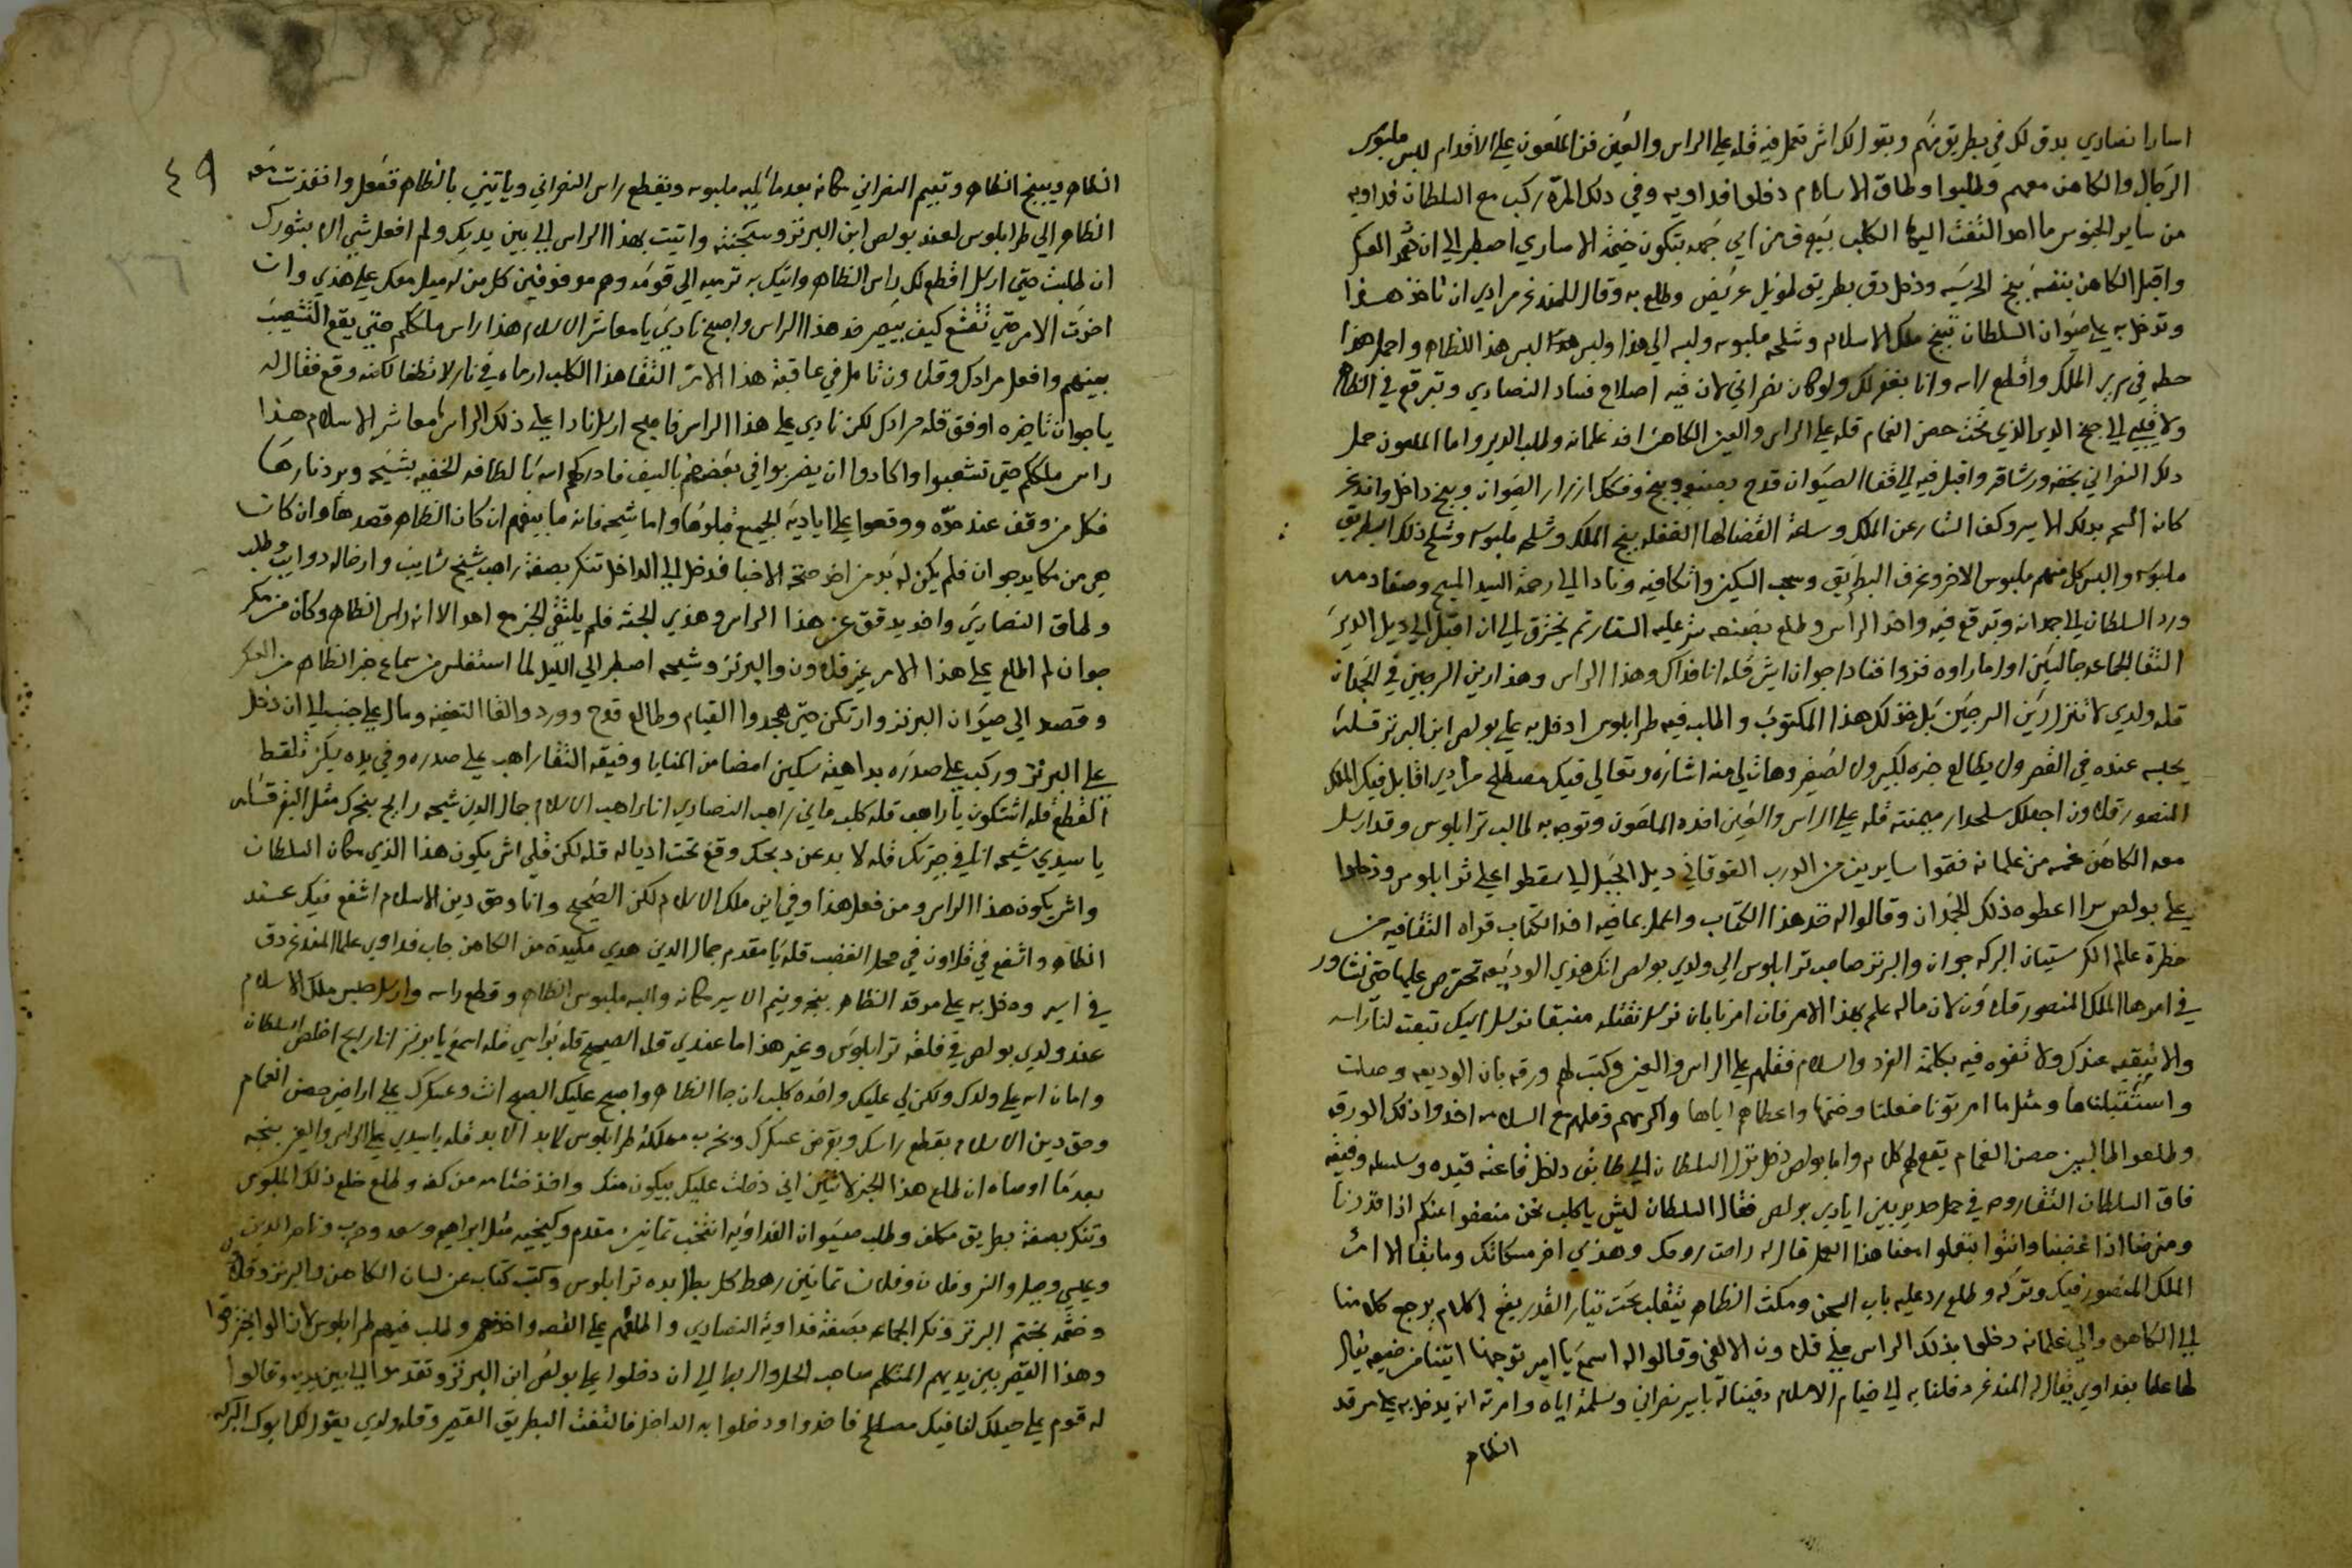 اسارا نصاري يدق لك في بطريق منهم ويقولك اش تعمل فيه قله علي الراس والعين فز الملعون علي الاقدام لبس ملبوس
الرجال والكاهن معهم وطلبوا وطاق الاسلام دخلوا فداويه وفي دلك المره ركب مع السلطان فداويه
من ساير الحبوس ما احد التفت اليهم الكلب خيمة الاساري اصطبر الي ان العسكر
واقبل الكاهن بنفسه بنج الحرسيه ودخل دق بطريق طويل عريض وطلع به وقال للمندغر مرادي ان تاخد هدا
وتدخل به علي صيوان السلطان تبنج ملك الاسلام وشلحه ملبوسه ولبسه الي هدا ولبس هدا لبس هدا للظاهر واحمل هدا
حطه في سرير الملك واقطع راسه وانا بغفر لك ولو كان نصراني لان فيه اصلاح فساد النصاري وتبرقع في الظاهر
ولاقيني الي الدير الذي تحت حصن الغمام قله علي الراس والعين الكاهن اخد غلمانه وطلب الدير واما الملعون حمل
دلك النصراني بخفه ورشاقه واقبل فيه الي قفا الصيوان قدح وبنج وفكك ازرار الصيوان وبنج داخل واندغر
كانه النجم بدلك الاسير وكف الستار عن الملك وساعة القضا لها الغفله بنج الملك وشلحه ملبوسه وشلح ذلك البطريق
ملبوسه والبس كل منهم ملبوس الاخر وعرف البطريق وسحب السكين واتكا فيه ونادا الي رحمة السيد المسيح
ورد السلطان الي جمدانه وتبرقع فيه واخد الراس وطلع عليه الستار ثم يخترق الي ان اقبل الي ديل الدير
التقا الجماعه جالسين اول ما راوه فزوا قفا دا جوان ايش قله انا فداك وهذا الراس وهذا رين المسيحين في الجمدان
قله ولدي لا تنزل رين المسيحين بل خد لك هذا المكتوب واطلب فيه طرابلوس ادخل به علي بولص ابن البرنز قله
يحبسه عنده في القصر ول يطالع خبره لكبير ول لصغير وهات لي منه اشاره وتعالي فيك مصطلح مرادي اقابل فيك الملك
المنصور قلاون اجعلك سلحدار ميمنته قله علي الراس والعين اخده الملعون وتوجه به طالب ترابلوس وقد ارسل
معه الكاهن خمسه من غلمانه فقوا سايرين من الدرب الفوقاني ديل الجبل لا سقطوا علي ترابلوس ودخلوا
علي بولص سرا اعطوه ذلك الجمدان وقالوا له خد هذا الكتاب واعمل بما فيه اخد الكتاب قراه التقا فيه من
حظرة عالم الكرستيان البركه جوان والبرنز صاحب ترابلوس الي ولدي بولص انك هذي الوديعه تحترص عليها حتي نشاور
في امرها الملك المنصور قلاون لان ماله علم بهذا الامر فان امرنا بان نوسل نقتله منبقا نوسل اليك تبعت لنا راسه
والا نبقيه عندك ولا تفوه فيه بكلمة الفرد والسلام فقلهم علي الراس والعين وكتب لهم ورقه بان الوديعه وصلت
واستقبلناها ومثل ما امرتونا فعلنا وختمها واعطاهم اياها واكرمهم وقلهم مع السلامه اخدوا ذلك الورقه
وطلعوا طالبين حصن الغمام يقع لهم كلام واما بولص دخل نزل السلطان الي طابق داخل قاعته قيده وسلسله وفيقه
فاق السلطان التقا روحه في حمل حديد بين ايادي بولص فقال السلطان ليش يا كلب نحن منعفوا عنكم اذا قدرنا
ومنرضا اذا غضبنا وانتوا بتعملوا معنا هذا العمل قال له راحت روحك وهذي اخر مسكانك وما بقا الا امر
الملك المنصور فيك وتركه وطلع رد عليه باب السجن ومكث الظاهر يتقلب تحت تيار القدر يقع له كلام يرجع كلامنا
الي الكاهن والي غلمانه دخلوا بذلك الراس علي قلاون الالفي وقالوا له اسمع يا امير توجهنا اتينا من ضيعه يقال
لها عطا بفداوي يقال له المندغر دخلنا به الي خيام الاسلام دقينا له باسير نصراني وسلمنه اياه وامرته انه يدخل به علي مرقد
الظاهر
٤٩
الظاهر ويبنج الظاهر ويقيم النصراني مكانه بعدما يلبسه ملبوسه ويقطع راس النصراني وياتيني بالظاهر ففعل وانفذت معه
الظاهر الي طرابلوس لعند بولص ابن البرنز وسجنته واتيت بهذا الراس الي بين يديك ولم افعل شي الا بشورك
ان طلبت حتي ارسل اقطع لك راس الظاهر واتيك به ترميه الي قومه وهم موقوفين كل من له ميل معك علي هذي وان
اخرت الامر حتي تقشع كيف بيصير خد هذا الراس واصبح نادي يا معاشر الاسلام هذا راس ملككم حتي يقع التشعيب
بينهم وافعل مرادك وقلاون تامل في عاقبة هذا الامر التقا هذا الكلب ارماه في نار لا تطفا لكنه وقع فقال له
يا جوان تاخيره اوفق قله مرادك لكن نادي علي هذا الراس فاصبح ارسل نادا علي ذلك الراس يا معاشر الاسلام هذا
راس ملككم حتي تشعبوا وكادوا ان يضربوا في بعضهم بالسيف فادركهم الله بالطافه الخفيه بشيحه وبرد نارها
فكل من وقف عند حده ووقعوا علي اياديه الجميع قبلوها واما شيحه فانه ما بينهم ان كان الظاهر قصدها وان كانت
هي من مكايد جوان فلم يكن له بد من اخد صحة الاخبار فدخل الي الداخل تنكر بصفة راهب شيخ شايب وارخا له دوايب وطلب
وطاق النصاري واخد يدقق عن هذا الراس وهذي الجثه فلم يلتقي الخبر مع احد الا انه راس الظاهر وكان من مكر
جوان لم اطلع علي هذا الامر غير قلاون والبرنز وشيحه اصطبر الي الليل لما استفلس من سماع خبر الظاهر من العسكر
وقصد الي صيوان البرنز وارتكن حتي هجدوا القيام وطالع قدح وورد والقا التعفينه ومال علي جنب الي ان دخل
علي البرنز وركب علي صدره بداهية سكين امضا من المنايا وفيقه التقا راهب علي صدره وفي يده سكين تلقط
القطع قله اشتكون يا راهب قله كلب ماني راهب النصاري انا راهب الاسلام جمال الدين شيحه رايح بنحرك مثل البقر قله
يا سيدي شيحه انا في جيرتك قله لا بد عن دبحك وقع تحت ادياله قله لكن قلي اش يكون هذا الذي مكان السلطان
واش يكون هذا الراس ومن فعل هذا وفي اين ملك الاسلام لكن الصحيح وانا وحق دين الاسلام اشفع فيك عند
الظاهر واشفع في قلاون في محل الغضب قله يا مقدم جمال الدين هدي مكيدة من الكاهن جاب فداوي عطا المندغر دق
في اسير ودخل به علي مرقد الظاهر بنجه ونيم الاسير مكانه والبسه ملبوس الظاهر وقطع راسه وارسل حبس ملك الاسلام
عند ولدي بولص في قلعة ترابلوس وغير هذا ما عندي قله الصحيح قله براسي قله اسمع يا برنز انا رايح اخلص السلطان
وامان الله علي ولدك ولكن لي عليك واخده كلب ان جا الظاهر واصبح عليك الصبح انت وعسكرك علي اراضي حصن الغمام
وحق دين الاسلام بقطع راسك وبقرض عسكرك وبخرب مملكة طرابلوس لابد الابد قله يا سيدي علي الراس والعين بنجه
بعدما اوصاه ان طلع هذا الخبر لاثنين اني دخلت عليك بيكون منك واخد ختامه من كفه وطلع خلع ذلك الملبوس
وتنكر بصفة بطريق مكلف وطلب صيوان الفداويه انتخب تمانين مقدم وكيخيه مثل ابراهيم وسعد وحرب وناصر الدين
وعيسي وجبل والنزو فلان وفلان تمانين رهط كل بطل بده ترابلوس وكتب كتاب عن لسان الكاهن والبرنز وقلاون
وختمه بختم البرنز ونكر الجماعه بصفة فداوية النصاري واطلعهم علي القصه واخدهم وطلب فيهم طرابلوس
وهذا القصير بين يديهم المتكلم صاحب الحل والربط الي ان دخلوا علي بولص ابن البرنز وتقدموا الي بين يديه وقالوا
له قوم علي حيلك لفا فيك مصطلح فاخدوا ودخلوا به الداخل فالتفت البطريق القصير وقله ولدي يقولك ابوك البركه